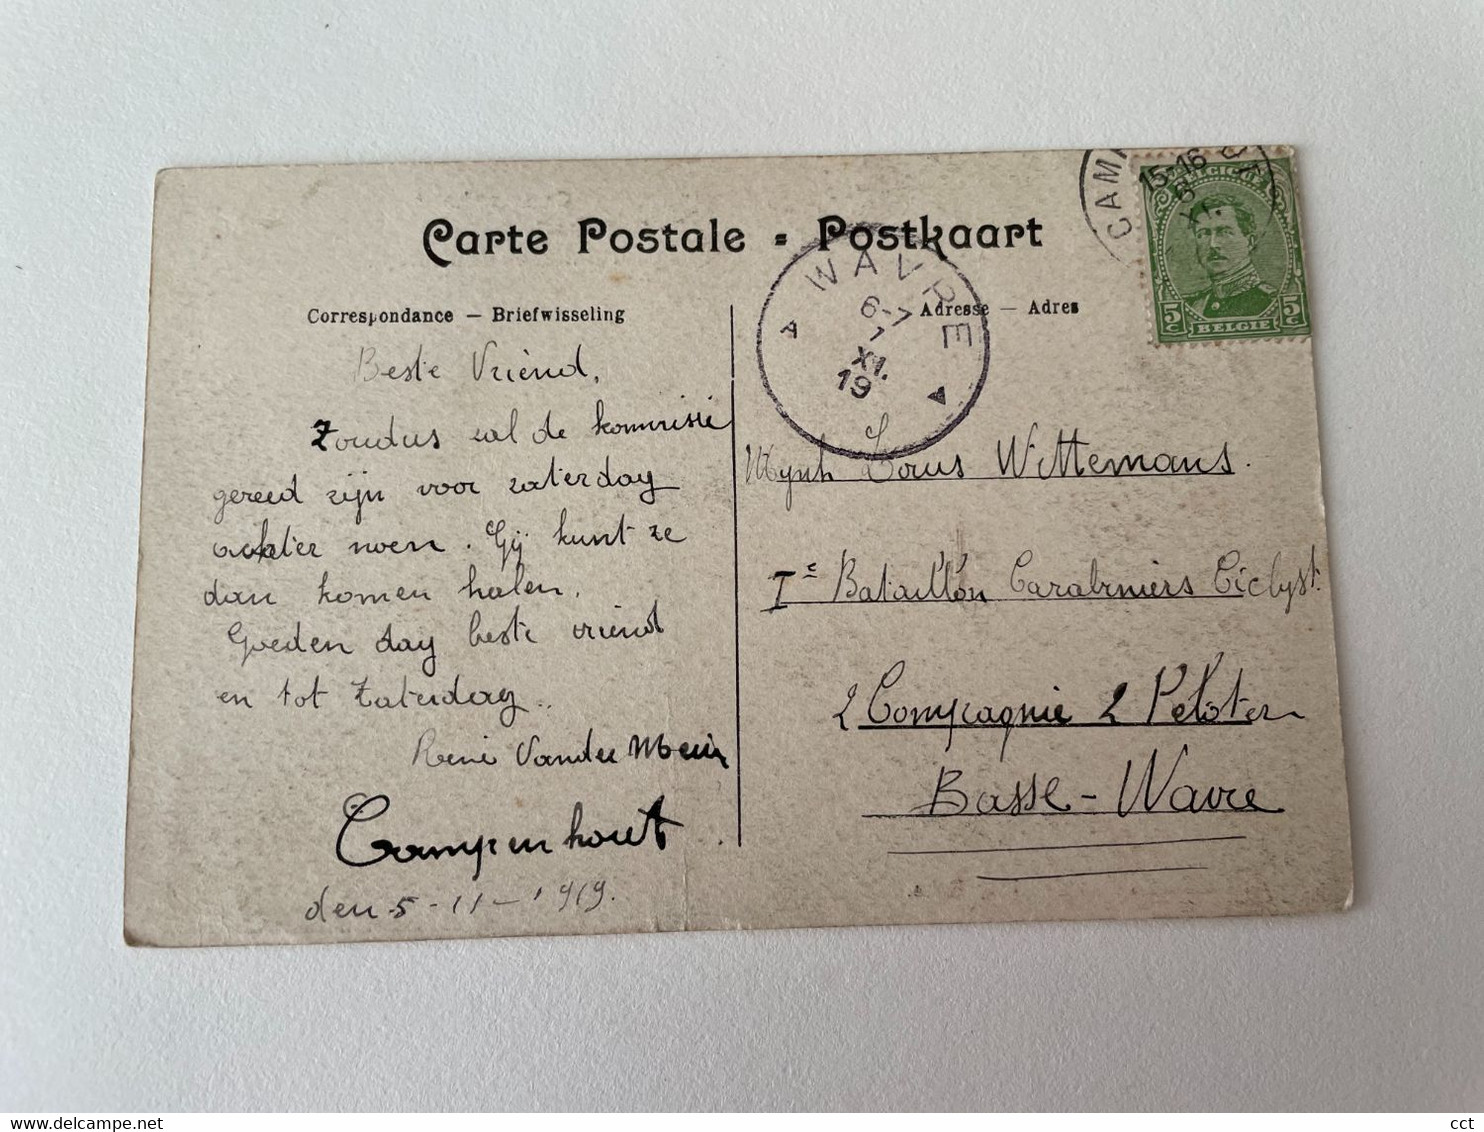 Carte Postale - Postkaart
Correspondance — Briefwisseling
Adresse — Adres
Beste Vriend,
Zoudus zal de kommissie
gereed zijn voor zaterdag
achter noen. Gij kunt ze
dan komen halen.
Goeden dag beste vriend
en tot Zaterdag..
René Vander Meir
Campenhout.
den 5-11-1919.
WAVRE
6-7
7
XI.
19
CAM
15-16
6
XI.
BELGIE
5c
5c
Mynh Louis Wittemans.
Ie Bataillon Carabiniers Ciclyst.
2 Compagnie 2 Peloton
Basse-Wavre
cct